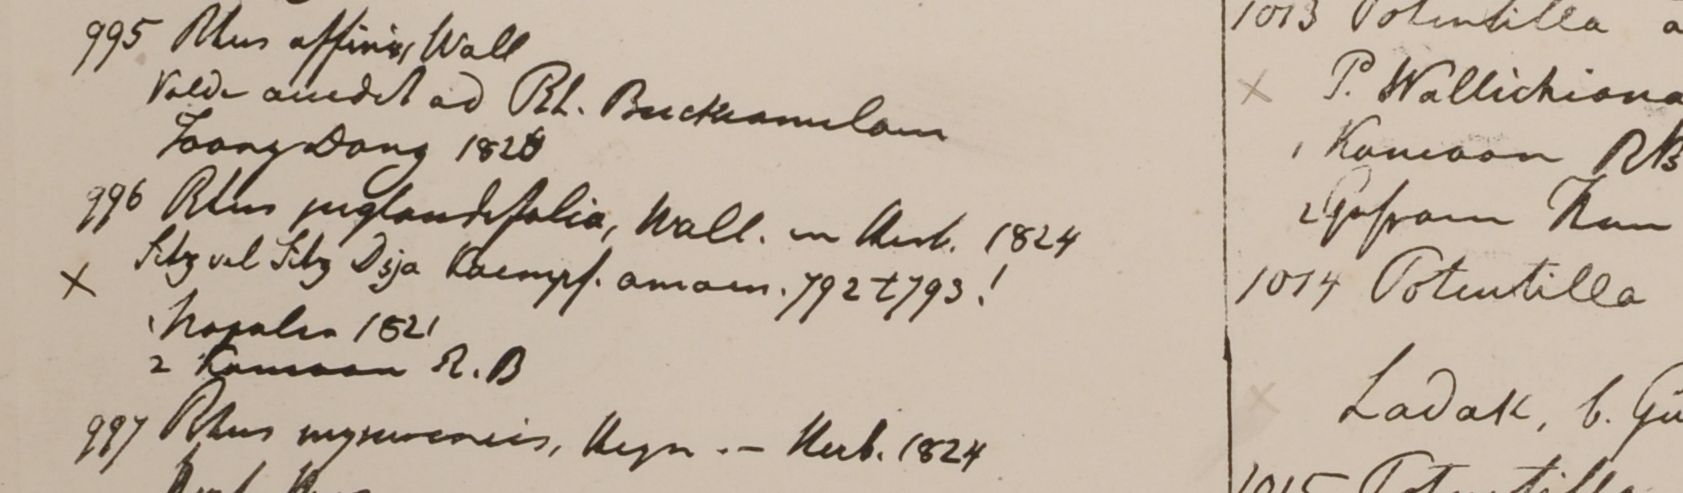 995 Rhus affinis, Wall
Valde accedit ad Rh. Buckiamelam
Toong Dong 1820
996 Rhus juglandifolia, Wall. in Herb. 1824
Sitz vel Sitz Dsja Kaempf. amoen. 792 t 793!
1 Napalia 1821
2 Kamaon R.B
997 Rhus mysurensis, Heyn. - Herb. 1824
1013 Potentilla a
P. Wallichiana
1 Kamaon RB
2 Gossam
1014 Potentilla
Ladak, b. Gu
1015 Potentilla